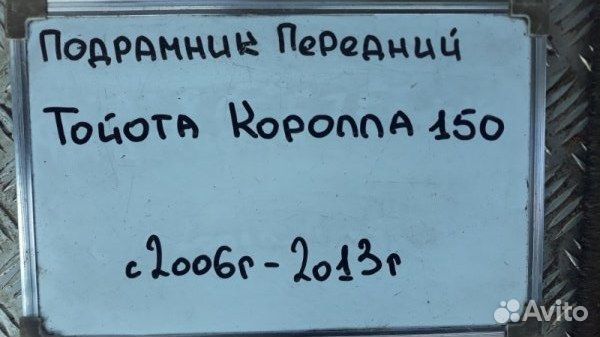 Подрамник Передний
Тойота Королла 150
с 2006г - 2013г
Avito